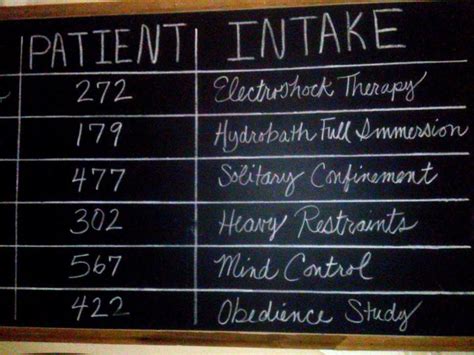 PATIENT INTAKE
272 Electroshock Therapy
179 Hydrobath Full Immersion
477 Solitary Confinement
302 Heavy Restraints
567 Mind Control
422 Obedience Study